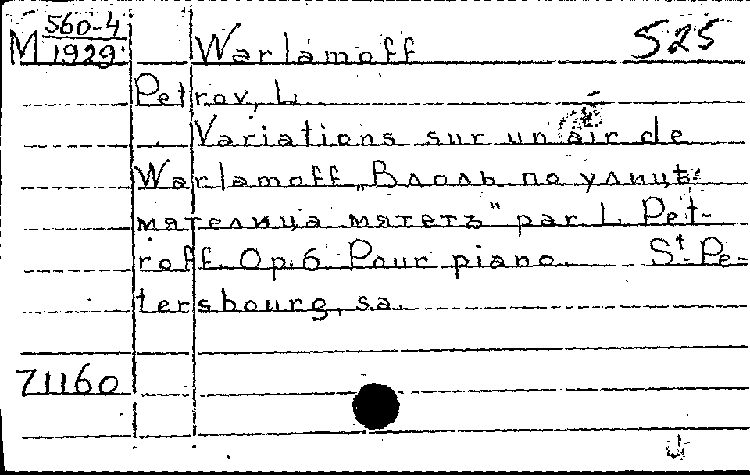 M 560-4 Warlamoff 525
1929
Petrov, L.
Variations sur un air de
Warlamoff „Вдоль по улицѣ
мятелица мятетъ" par L. Pet-
roff. Op. 6 Pour piano. St. Pe-
tersbourg, s.a.
71160